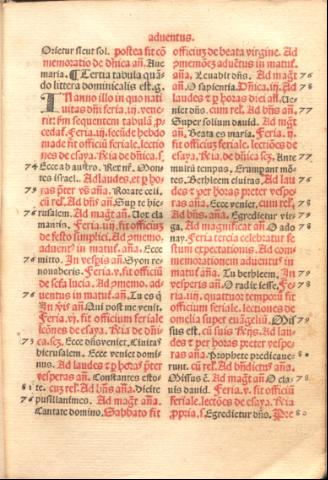 aduentus.
Orietur sicut sol. postea fit cō
memoratio de dnica añ. Aue
maria. ¶ Tertia tabula quā
do littera dominicalis est .g.
In anno illo in quo nati
uitas dñi feria .ij. vene
rit: fm sequentem tabulā p
cedat. Feria .iij. secūde hebdo
made fit officiū feriale. lectio
nes de esaya. Rria de dnica .s.
74 Ecce ab austro. Mon
tes israel. Ad laudes. et p horas
Rorate celi.
cū rel. Ad bñs añ. Sup te hie
76 rusalem. Ad magt añ. Uox cla
mantis. Feria .vij. fit officiū
de festo simplici. Ad pmemo.
aduent⁹ in matuť. añ. Ecce
76 mitto. In vespis añ. Syon re
nouaberis. Feria .v. fit officiū
de scťa lucia. Ad pmemo. ad
uentus in matuť. añ. Tu es q̄
In vp̄is añ. Qui post me venit.
Feria .vj. fit officiū feriale
lcōnes de esaya. Rria de dñi
73 ca .scz. Ecce dñs veniet. Ciuitas
hierusalem. Ecce veniet domi
nus. Ad laudes et p horas preter
vesperas añ. Constantes esto
81 te. cuz rel. Ad bñs añ. Dicite
76 pusillanimes. Ad magt añ.
Cantate domino. Sabbato fit
officiuz de beata virgine. Ad
pmemōez aduētus in matuť.
añ. Leuabit dñs. Ad magt 76
añ. O sapientia. Dnica .iij. Ad 78
laudes et p horas diei añ. Ue
niet dñs. cum rel. Ad bñs añ. 77
Super solium dauid. Ad magt
añ. Beata es maria. Feria .ij.
fit officiuz feriale. lectiones
de esaya. Rria de dnica scz. Ante 77
multū tempus. Erumpant mō
tes. Bethleem ciuitas. Ad lau 76
des et per horas preter vespe
ras añ. Ecce veniet. cum rel. 78
Ad bñs. añ. Egredietur virga. 79
Ad magnificat añ. O ado 78
nay. Feria tercia celebratur fe
stum expectationis. Ad com
memorationem aduentus in
matuť. añ. Tu bethleem. In 79
vesperis añ. O radix iesse. Fe 78
ria .iiij. quattuor temporū fit
officium feriale. lectiones de
omelia super euāgeliū. Mis 79
sus est. cū suis Rrijs. Ad lau
des et per horas preter vespe
ras añ. Prophete predicaue 80
runt. cū rel. Ad bñdictus añ.
Missus ē. Ad magt añ. O cla 78
uis dauid. Feria .v. fit officiū
feriale. lectōes de esaya. Rria
ppria .s. Egredietur dñs. Pre 80